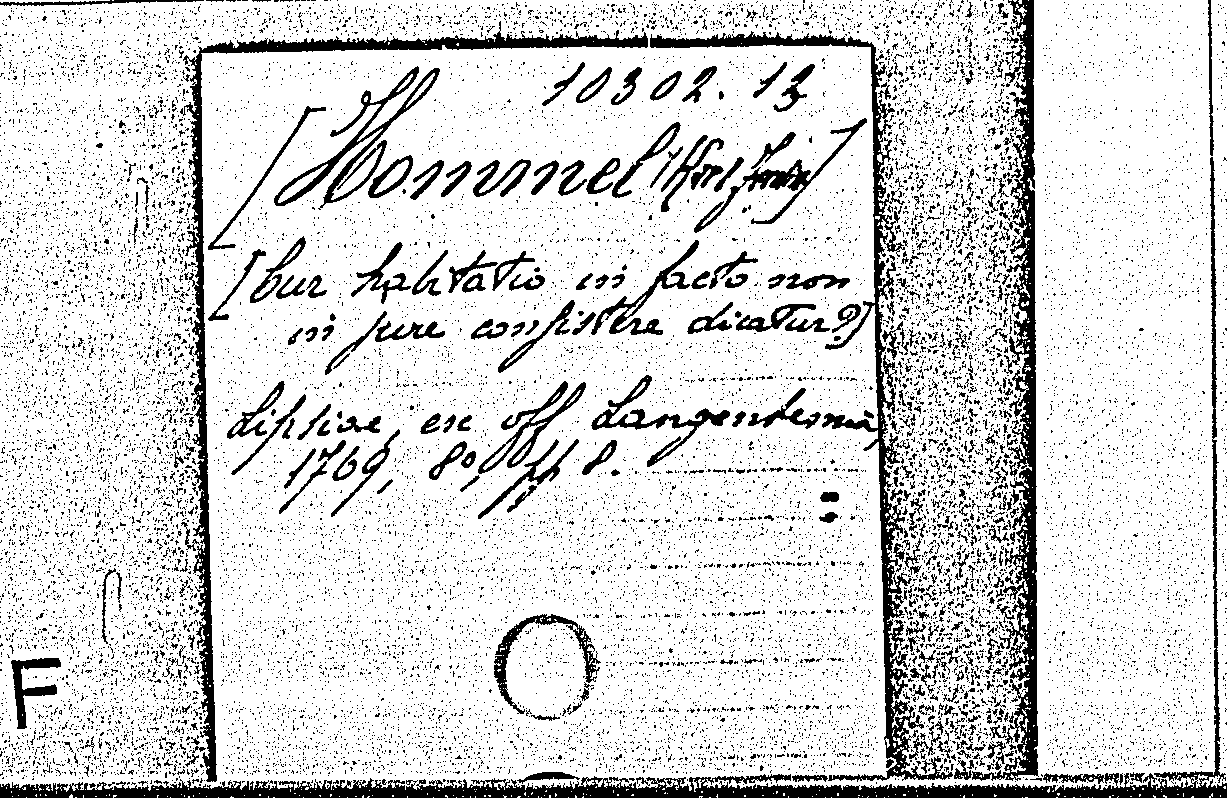 10302. 12
[Hommel (Karl Ferdin)]
[Cur habitatio in facto non
in jure consistere dicatur?]
Lipsiae, ex off Langenhemia,
1769, 8°, pp 8.
F